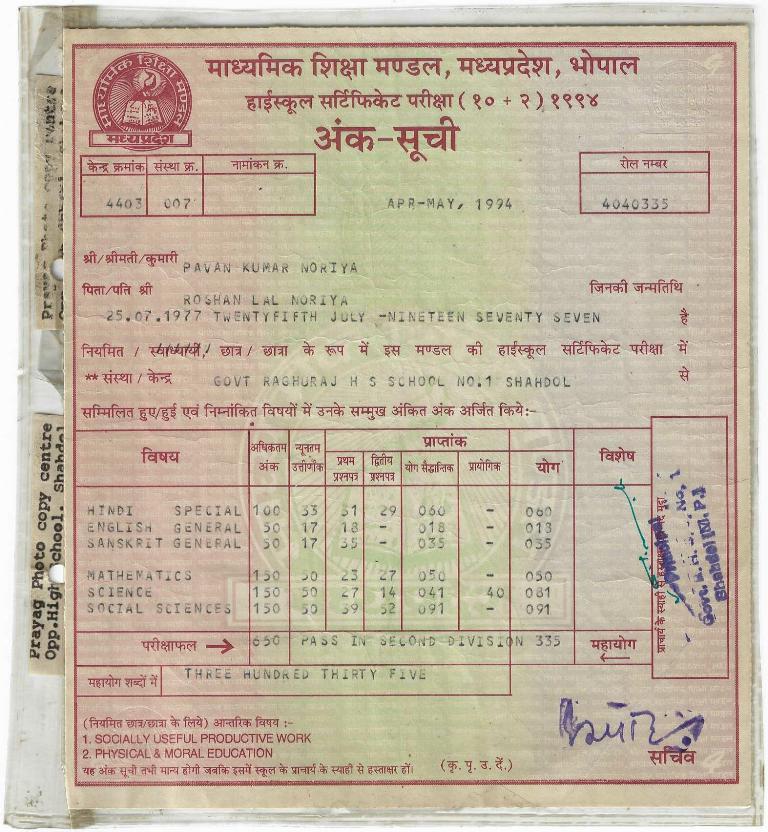 माध्यमिक शिक्षा मण्डल, मध्यप्रदेश, भोपाल
हाईस्कूल सर्टिफिकेट परीक्षा ( १० + २ ) १९९४
अंक-सूची
माध्यमिक शिक्षा मण्डल
मध्यप्रदेश
केन्द्र क्रमांक संस्था क्र. नामांकन क्र. रोल नम्बर
4403 007 APR-MAY, 1994 4040335
श्री/श्रीमती/कुमारी PAVAN KUMAR NORIYA
पिता/पति श्री ROSHAN LAL NORIYA जिनकी जन्मतिथि
25.07.1977 TWENTYFIFTH JULY -NINETEEN SEVENTY SEVEN है
नियमित / स्वाध्यायी/ छात्र / छात्रा के रूप में इस मण्डल की हाईस्कूल सर्टिफिकेट परीक्षा में
** संस्था / केन्द्र GOVT RAGHURAJ H S SCHOOL NO.1 SHAHDOL से
सम्मिलित हुए/हुई एवं निम्नांकित विषयों में उनके सम्मुख अंकित अंक अर्जित किये:-
विषय अधिकतम अंक न्यूनतम उत्तीर्णांक प्राप्तांक विशेष
प्रथम प्रश्नपत्र द्वितीय प्रश्नपत्र योग सैद्धान्तिक प्रायोगिक योग
HINDI SPECIAL 100 33 31 29 060 - 060
ENGLISH GENERAL 50 17 18 - 018 - 018
SANSKRIT GENERAL 50 17 35 - 035 - 035
MATHEMATICS 150 50 23 27 050 - 050
SCIENCE 150 50 27 14 041 40 081
SOCIAL SCIENCES 150 50 39 52 091 - 091
परीक्षाफल → 650 PASS IN SECOND DIVISION 335 महायोग ←
महायोग शब्दों में THREE HUNDRED THIRTY FIVE
(नियमित छात्र/छात्रा के लिये) आन्तरिक विषय :-
1. SOCIALLY USEFUL PRODUCTIVE WORK
2. PHYSICAL & MORAL EDUCATION
यह अंक सूची तभी मान्य होगी जबकि इसमें स्कूल के प्राचार्य के स्याही से हस्ताक्षर हों। (कृ. पृ. उ. दें.)
सचिव
Prayag Photo copy centre
Opp.High School, Shahdol
Prayag Photo copy centre